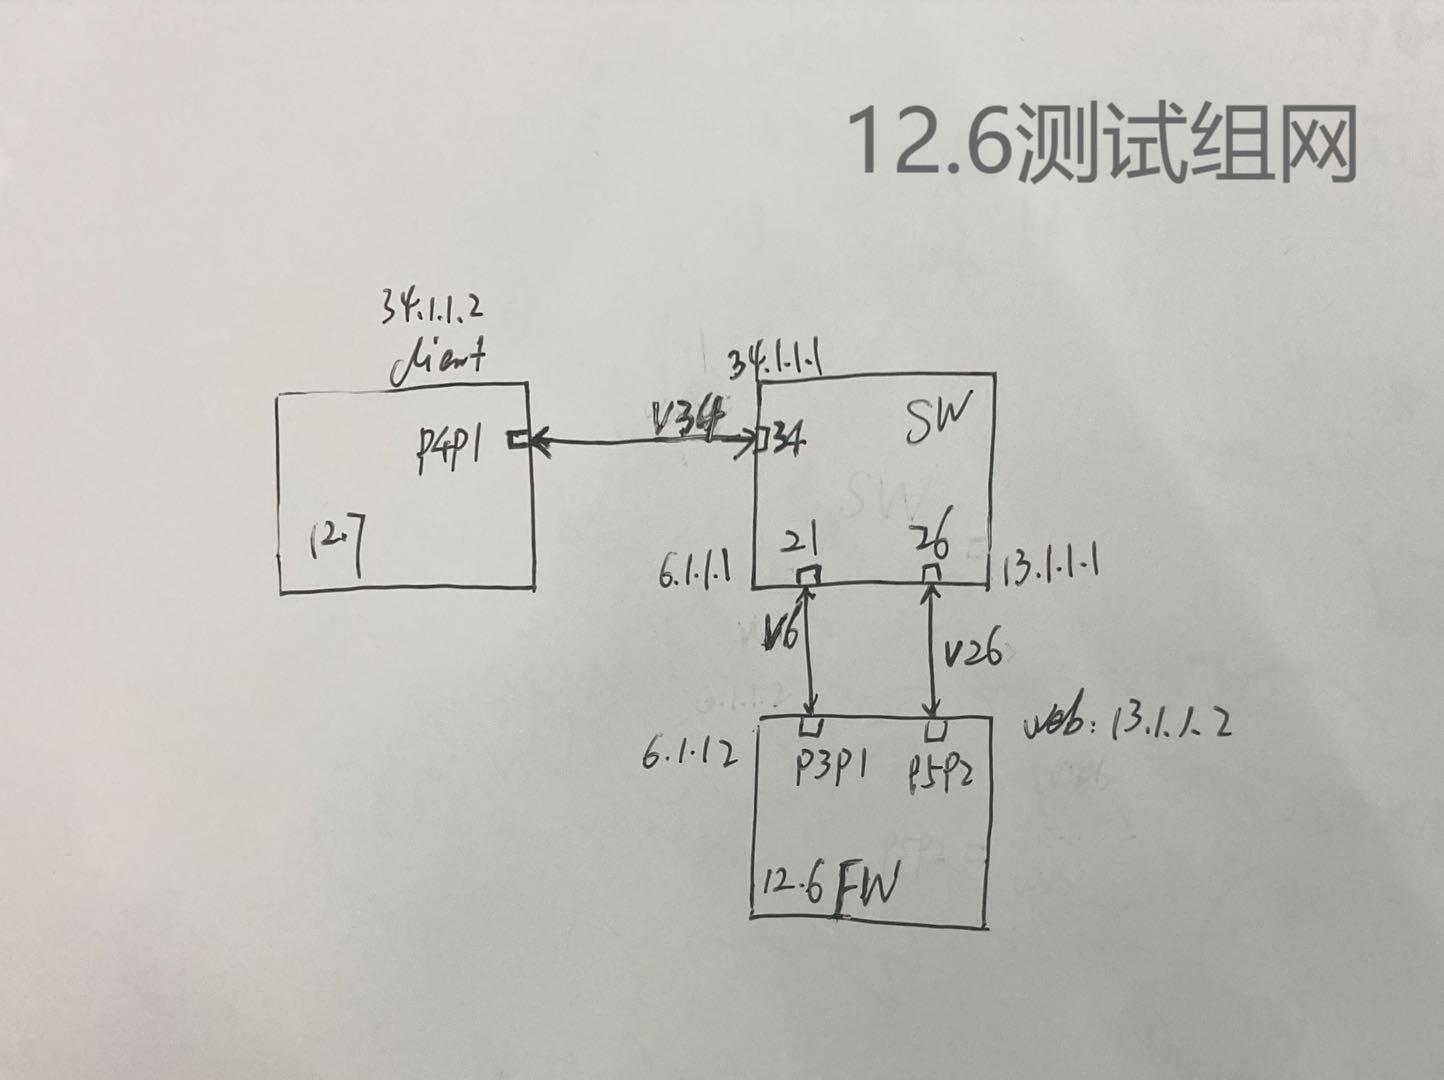 12.6测试组网
34.1.1.2
client
P4P1
12.7
V34
34.1.1.1
34
SW
21
26
6.1.1.1
13.1.1.1
V6
V26
6.1.12
web: 13.1.1.2
P3P1
P5P2
12.6 FW